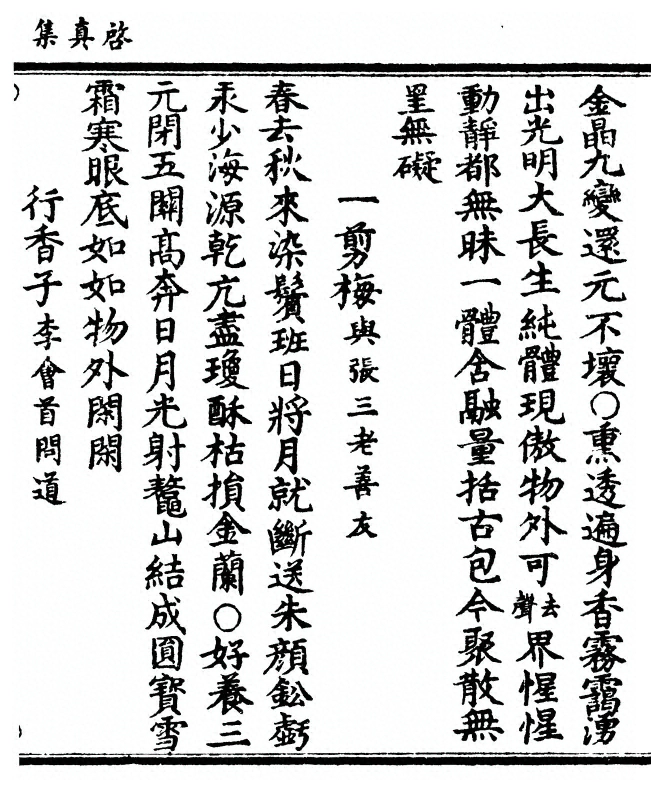 啓真集
金晶九變還元不壞○熏透遍身香霧靄湧
出光明大長生純體現傲物外可去聲界惺惺
動靜都無昧一體含融量括古包今聚散無
罣無礙
一剪梅與張三老善友
春去秋來染鬢班日將月就斷送朱顔鈆虧
汞少海源乾亢盡瓊酥枯損金蘭○好養三
元閉五關髙奔日月光射鼇山結成圓寳雪
霜寒眼底如如物外閑閑
行香子李會首問道